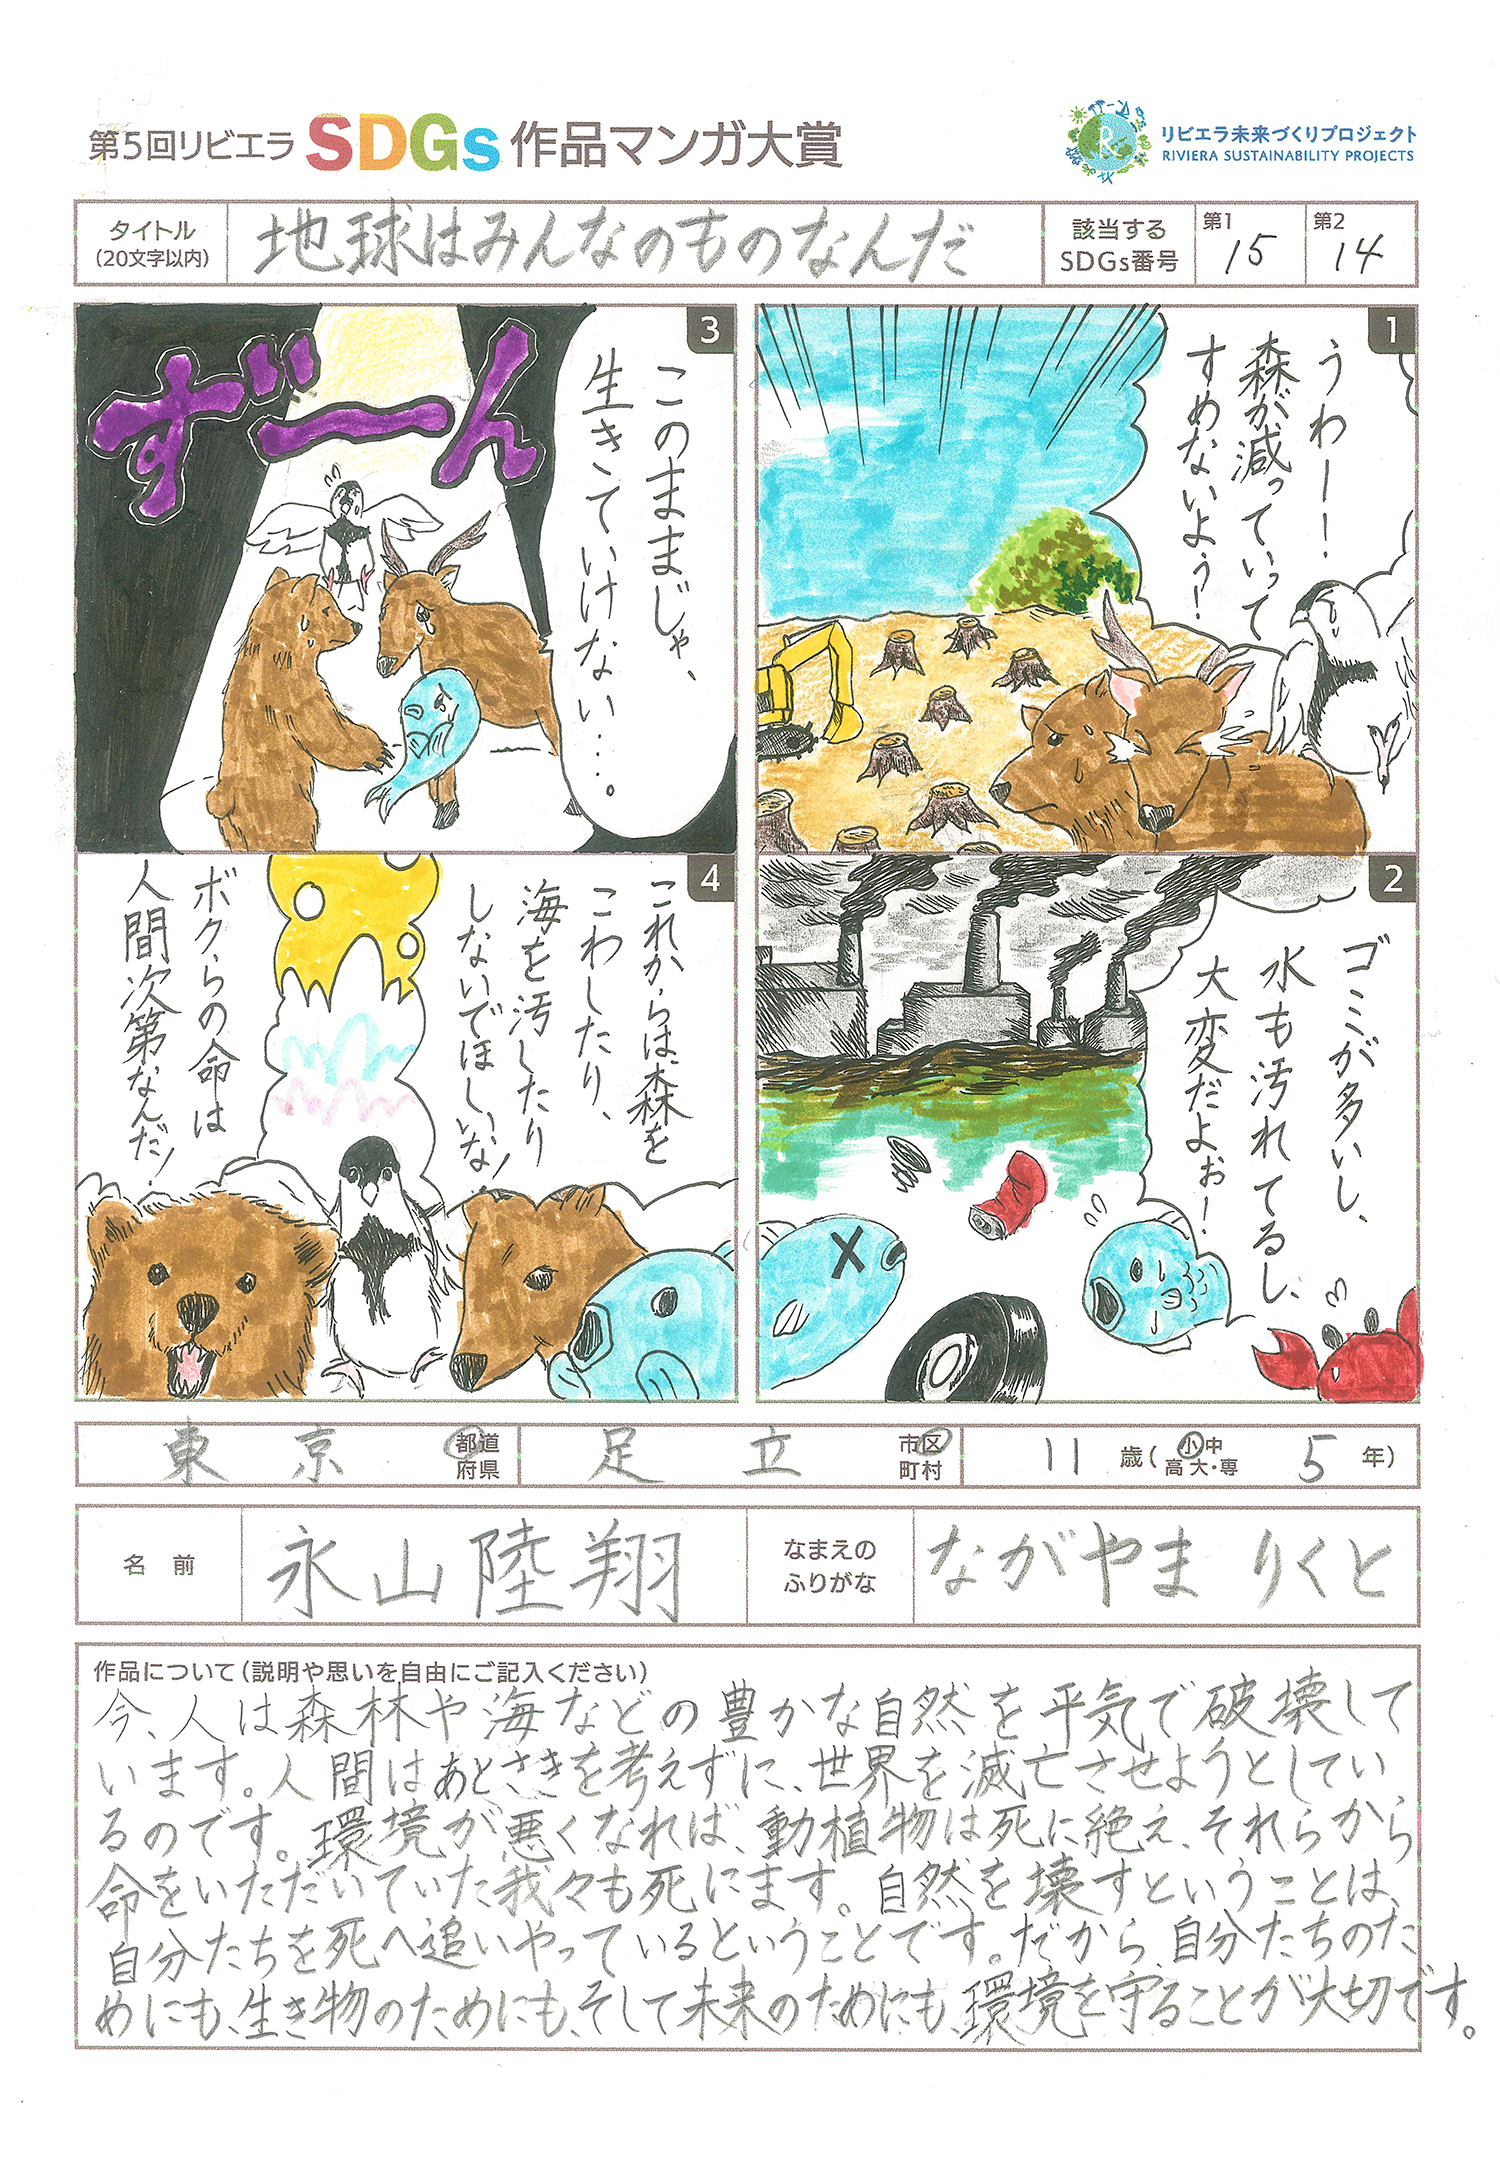 第5回リビエラ SDGs 作品マンガ大賞
リビエラ未来づくりプロジェクト
RIVIERA SUSTAINABILITY PROJECTS
タイトル
(20文字以内)
地球はみんなのものなんだ
該当する
SDGs番号
第1
15
第2
14
1
うわー!
森が減っていって
すめないよう!
2
ゴミが多いし、
水も汚れてるし、
大変だよぉー!
3
このままじゃ、
生きていけない……。
ずーん
4
これからは、森を
こわしたり、
海を汚したり
しないでほしいな!
ボクらの命は
人間次第なんだ!
東京
都道
府県
足立
市区
町村
11 歳(小中
高大・専
5 年)
名前
永山陸翔
なまえの
ふりがな
ながやま りくと
作品について(説明や思いを自由にご記入ください)
今、人は森林や海などの豊かな自然を平気で破壊して
います。人間はあとさきを考えずに、世界を滅亡させようとしてい
るのです。環境が悪くなれば、動植物は死に絶え、それらから
命をいただいていた我々も死にます。自然を壊すということは、
自分たちを死へ追いやっているということです。だから、自分たちのた
めにも、生き物のためにも、そして未来のためにも、環境を守ることが大切です。